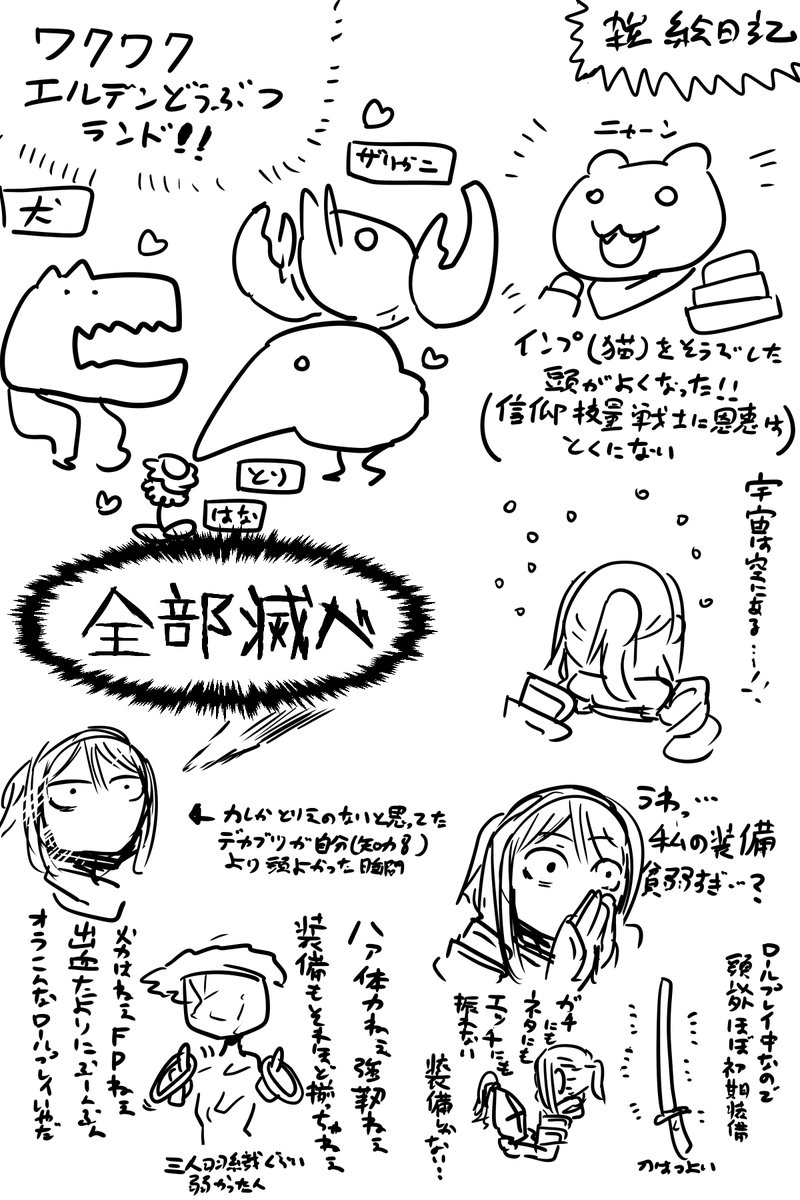 雑絵日記
ワクワク
エルデンどうぶつ
ランド!!
犬
ザリガニ
とり
はな
全部滅べ
ニャーン
インプ(猫)をそうびした
頭がよくなった!!
(信仰技量戦士に恩恵は
とくにない)
宇宙は空にある…!!
← 力しかとりえのないと思ってた
デカブツが自分(知力8)
より頭よかった瞬間
うわっ…
私の装備
貧弱すぎ…?
ロールプレイ中なので
頭以外ほぼ初期装備
刀はつよい
ガチにも
ネタにも
エッチにも
振れない
装備しかない…
ハァ体力ねぇ 強靭ねぇ
装備もそれほど揃っちゃねぇ
火力はねぇFPねぇ
出血たよりにぶーんぶん
オラこんなロールプレイいやだ
三人羽織ぐらい
弱かったん